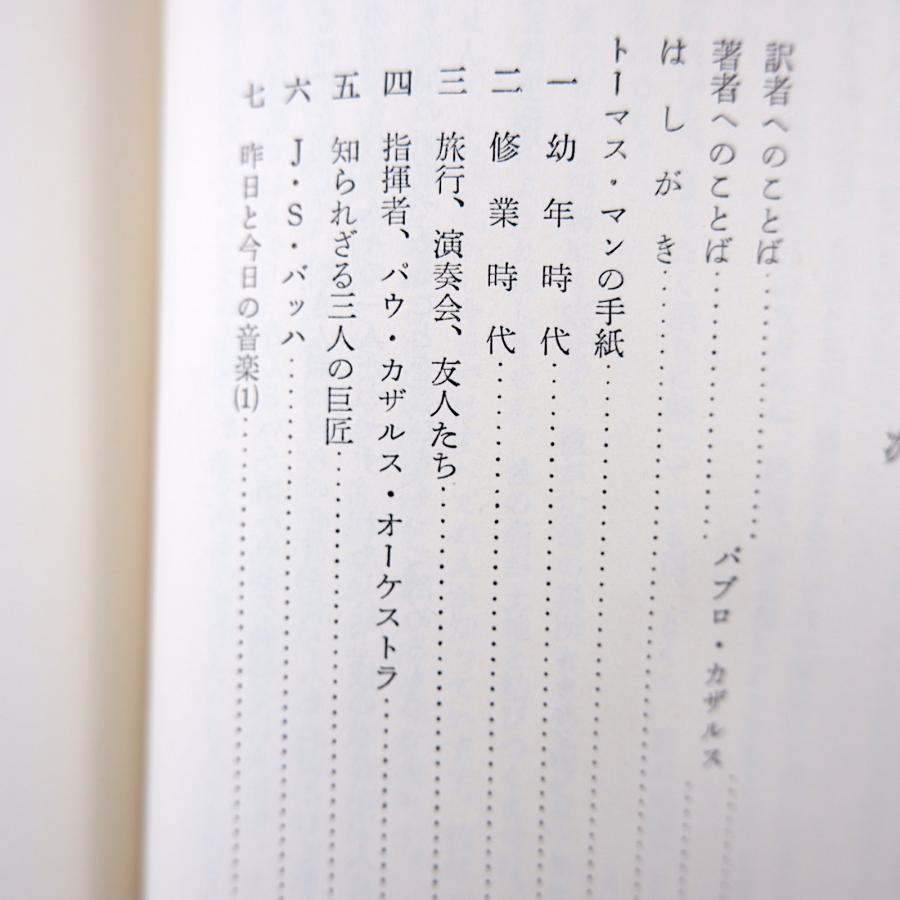 次
訳者へのことば
著者へのことば……パブロ・カザルス
はしがき
トーマス・マンの手紙
一 幼年時代
二 修業時代
三 旅行、演奏会、友人たち
四 指揮者、パウ・カザルス・オーケストラ
五 知られざる三人の巨匠
六 J・S・バッハ
七 昨日と今日の音楽(1)